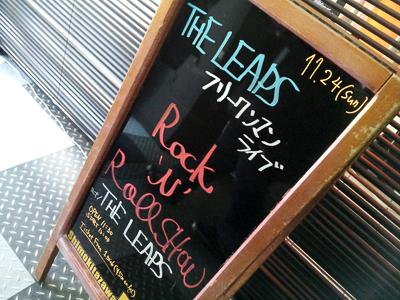 THE LEAPS
11.24(sun)
フリーワンマン
ライブ
Rock
'N'
Roll Show
THE LEAPS
OPEN 11:30
Shimokitazawa